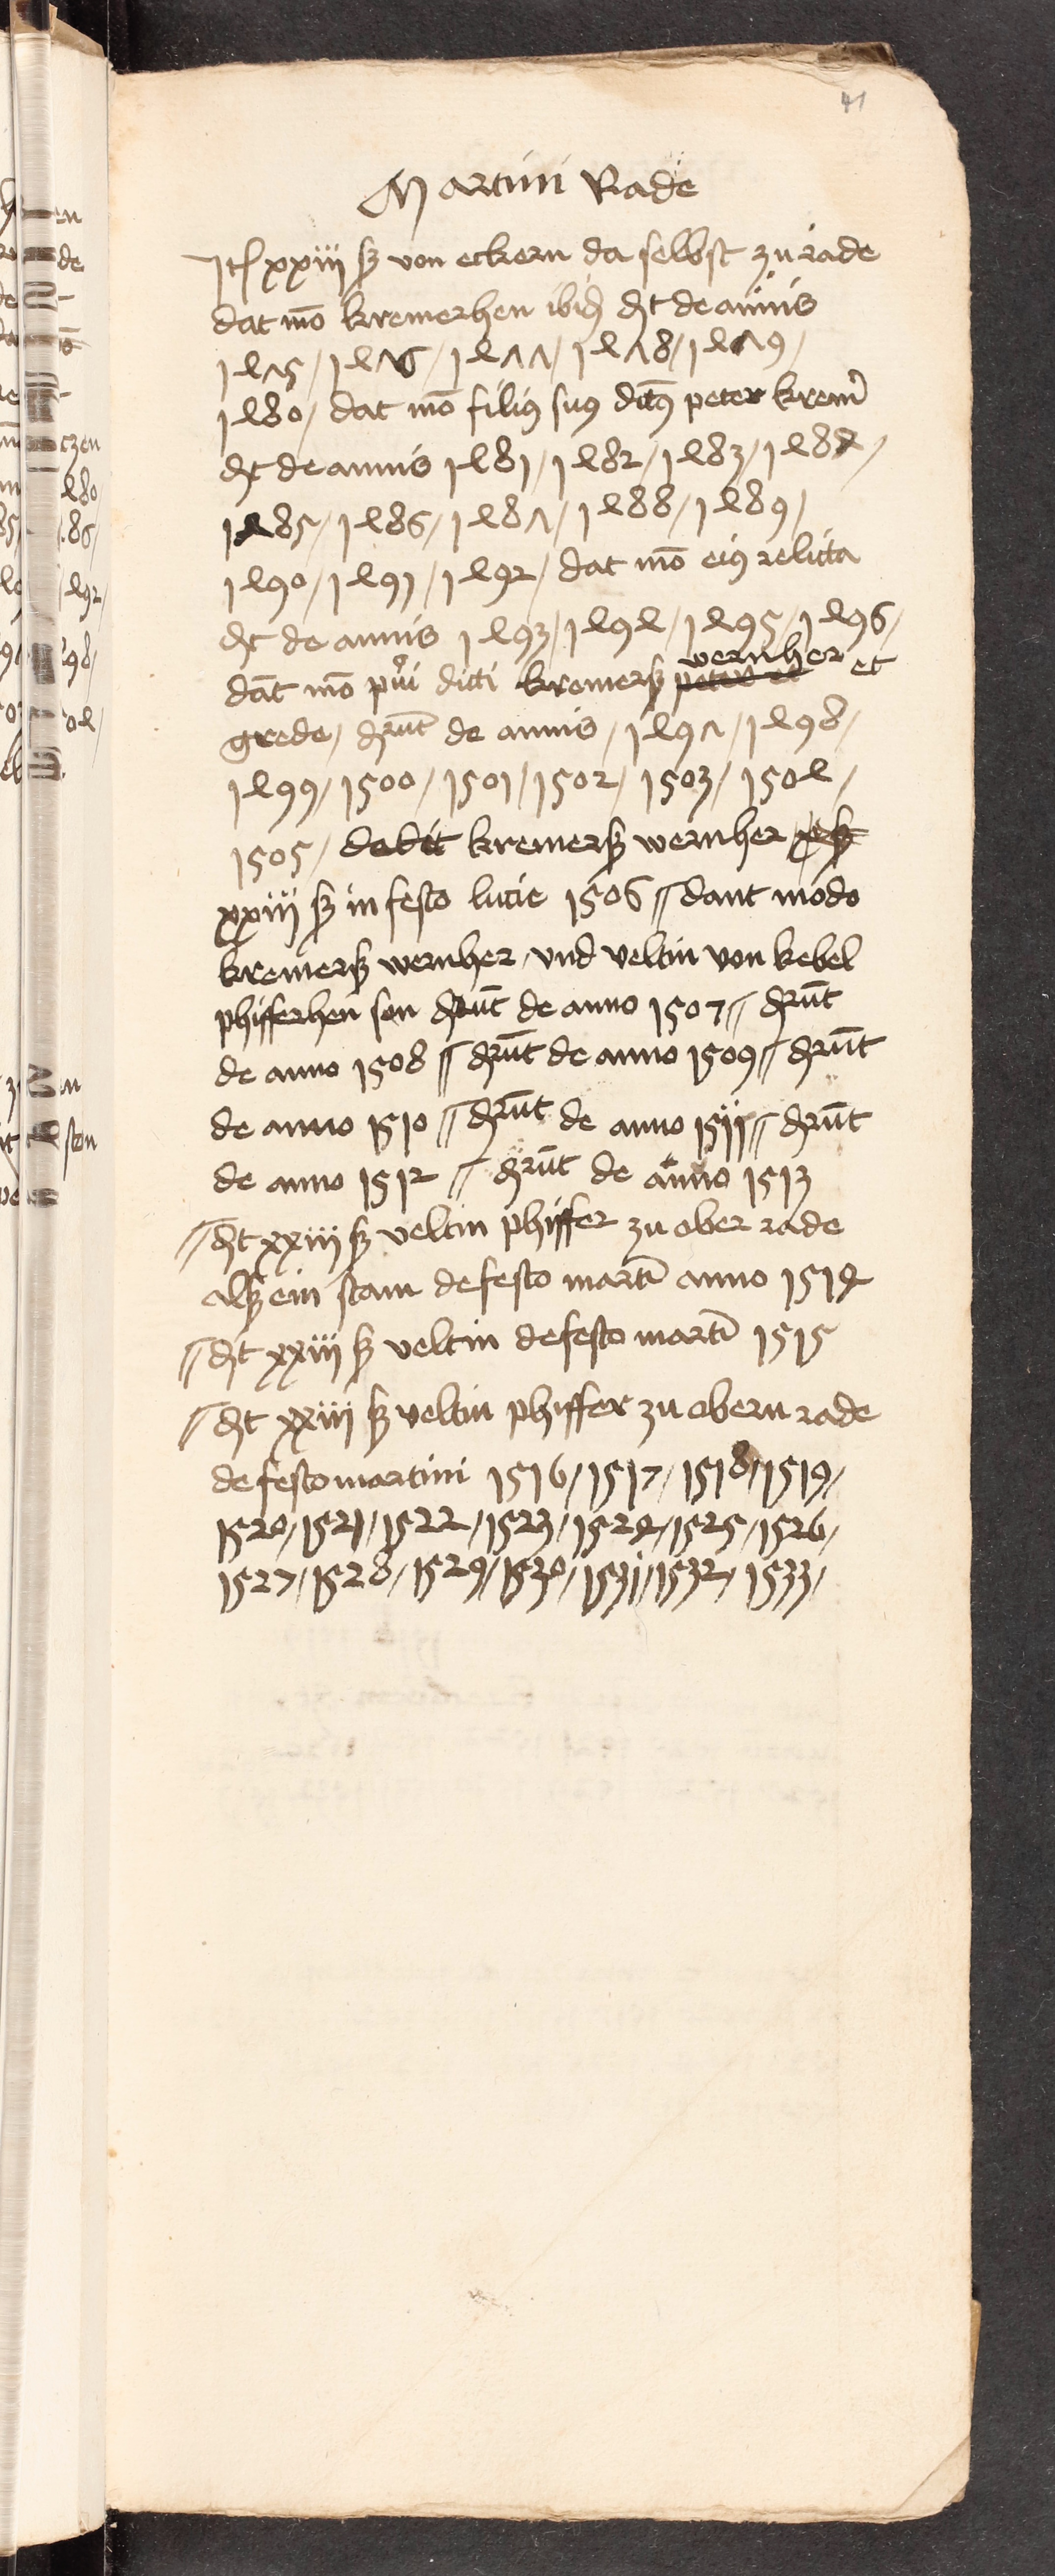 41
Martini Rade
Jt(em) xxiii ß von eckern da selbst zu rade
dat mo kremerhen ibid(em) d(edi)t de annis
1475 / 1476 / 1477 / 1478 / 1479 /
1480 / dat mo filius suus dictus peter krem(er)
dt de annis 1481 / 1482 / 1483 / 1484 /
1485 / 1486 / 1487 / 1488 / 1489 /
1490 / 1491 / 1492 / dat mo eius relicta
dt de annis 1493 / 1494 / 1495 / 1496 /
dant mo pueri dicti kremerß peter et wernher et
grede / d(ede)runt de annis / 1497 / 1498 /
1499 / 1500 / 1501 / 1502 / 1503 / 1504 /
1505 / dedit kremerß wernher
xxiii ß in festo lucie 1506 // dant modo
kremerß wernher / vnd veltin von kebel
phifferhen son drunt de anno 1507 // drunt
de anno 1508 // drunt de anno 1509 // drunt
de anno 1510 // drunt de anno 1511 // drunt
de anno 1512 // drunt de anno 1513
// dt xxiii ß veltin phiffer zu ober rade
alß ein stam de festo marti 	anno 1514
// dt xxiii ß veltin de festo marti 1515
// dt xxiii ß veltin phiffer zu obern rade
de festo martini 1516 / 1517 / 1518 / 1519 /
1520 / 1521 / 1522 / 1523 / 1524 / 1525 / 1526 /
1527 / 1528 / 1529 / 1530 / 1531 / 1532 / 1533 /